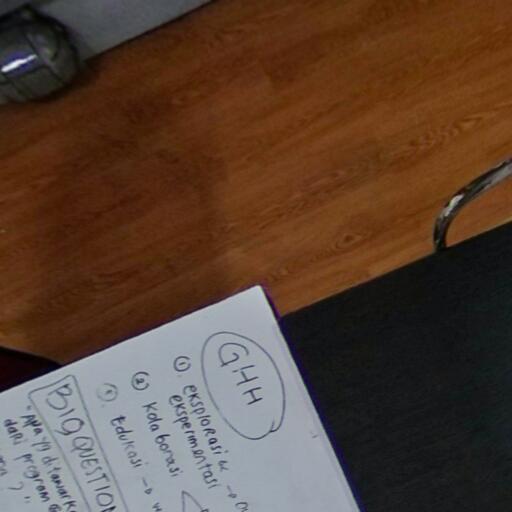 GHH
① eksplorasi & →
eksperimentasi
② kolaborasi <
③ Edukasi →
BIG QUESTION
"Apa yg ditawark
dari program
?"